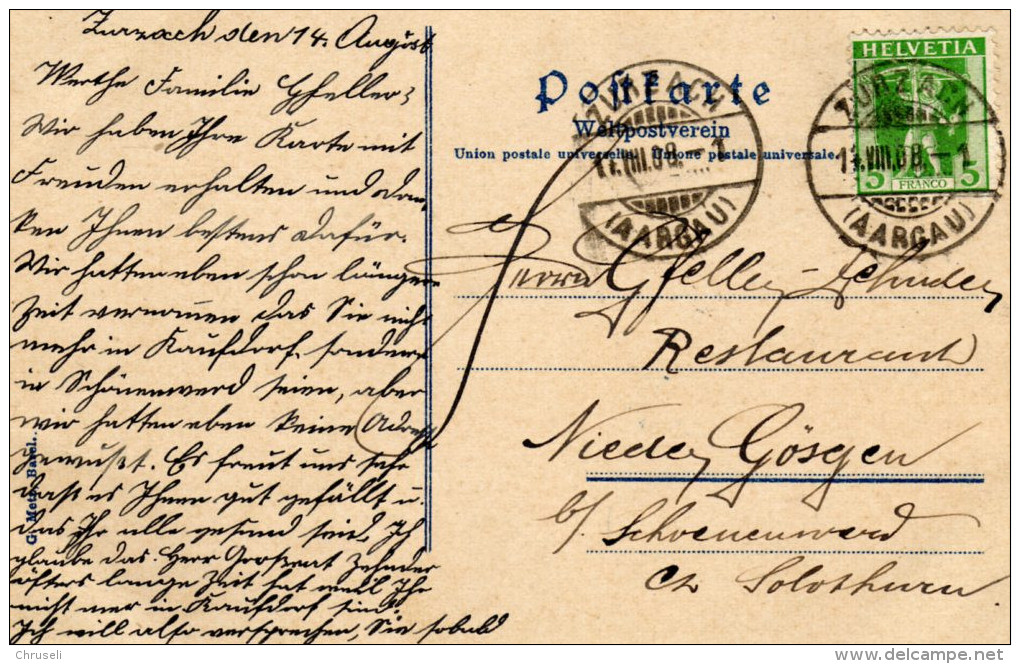 Zurzach den 14. August
Werthe Familie Gfeller,
Wir haben Ihre Karte mit
Freuden erhalten und dan-
ken Ihnen bestens dafür.
Wir hatten eben schon längere
Zeit vernommen das Sie nicht
mehr in Kaufdorf, sondern
in Schönenwerd seien, aber
wir hatten eben keine Adresse
gewusst. Es freut uns sehr
dass es Ihnen gut gefällt u
das Ihr alle gesund seid. Ich
glaube das Herr Grossrat Zehnder
öfters lange Zeit hat weil Ihr
nicht mer in Kaufdorf sind.
Ich will also versprechen, Sie sobald
G. Metz, Basel.
Postkarte
Weltpostverein
Union postale universelle. Unione postale universale.
ZURZACH
VIII.08.–1
(AARGAU)
HELVETIA
5 FRANCO 5
ZURZACH
VIII.08.–1
(AARGAU)
Herrn Gfeller-Zehnder
Restaurant
Nieder Gösgen
b/ Schoenenwerd
Ct Solothurn
Chruseli
delcampe.net